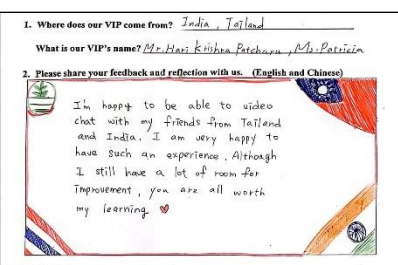 1. Where does our VIP come from? India, Tailand
What is our VIP's name? Mr. Hari Krishna Patcharu, Ms. Patricia
2. Please share your feedback and reflection with us. (English and Chinese)
I'm happy to be able to video
chat with my friends from Tailand
and India. I am very happy to
have such an experience. Although
I still have a lot of room for
improvement, you are all worth
my learning